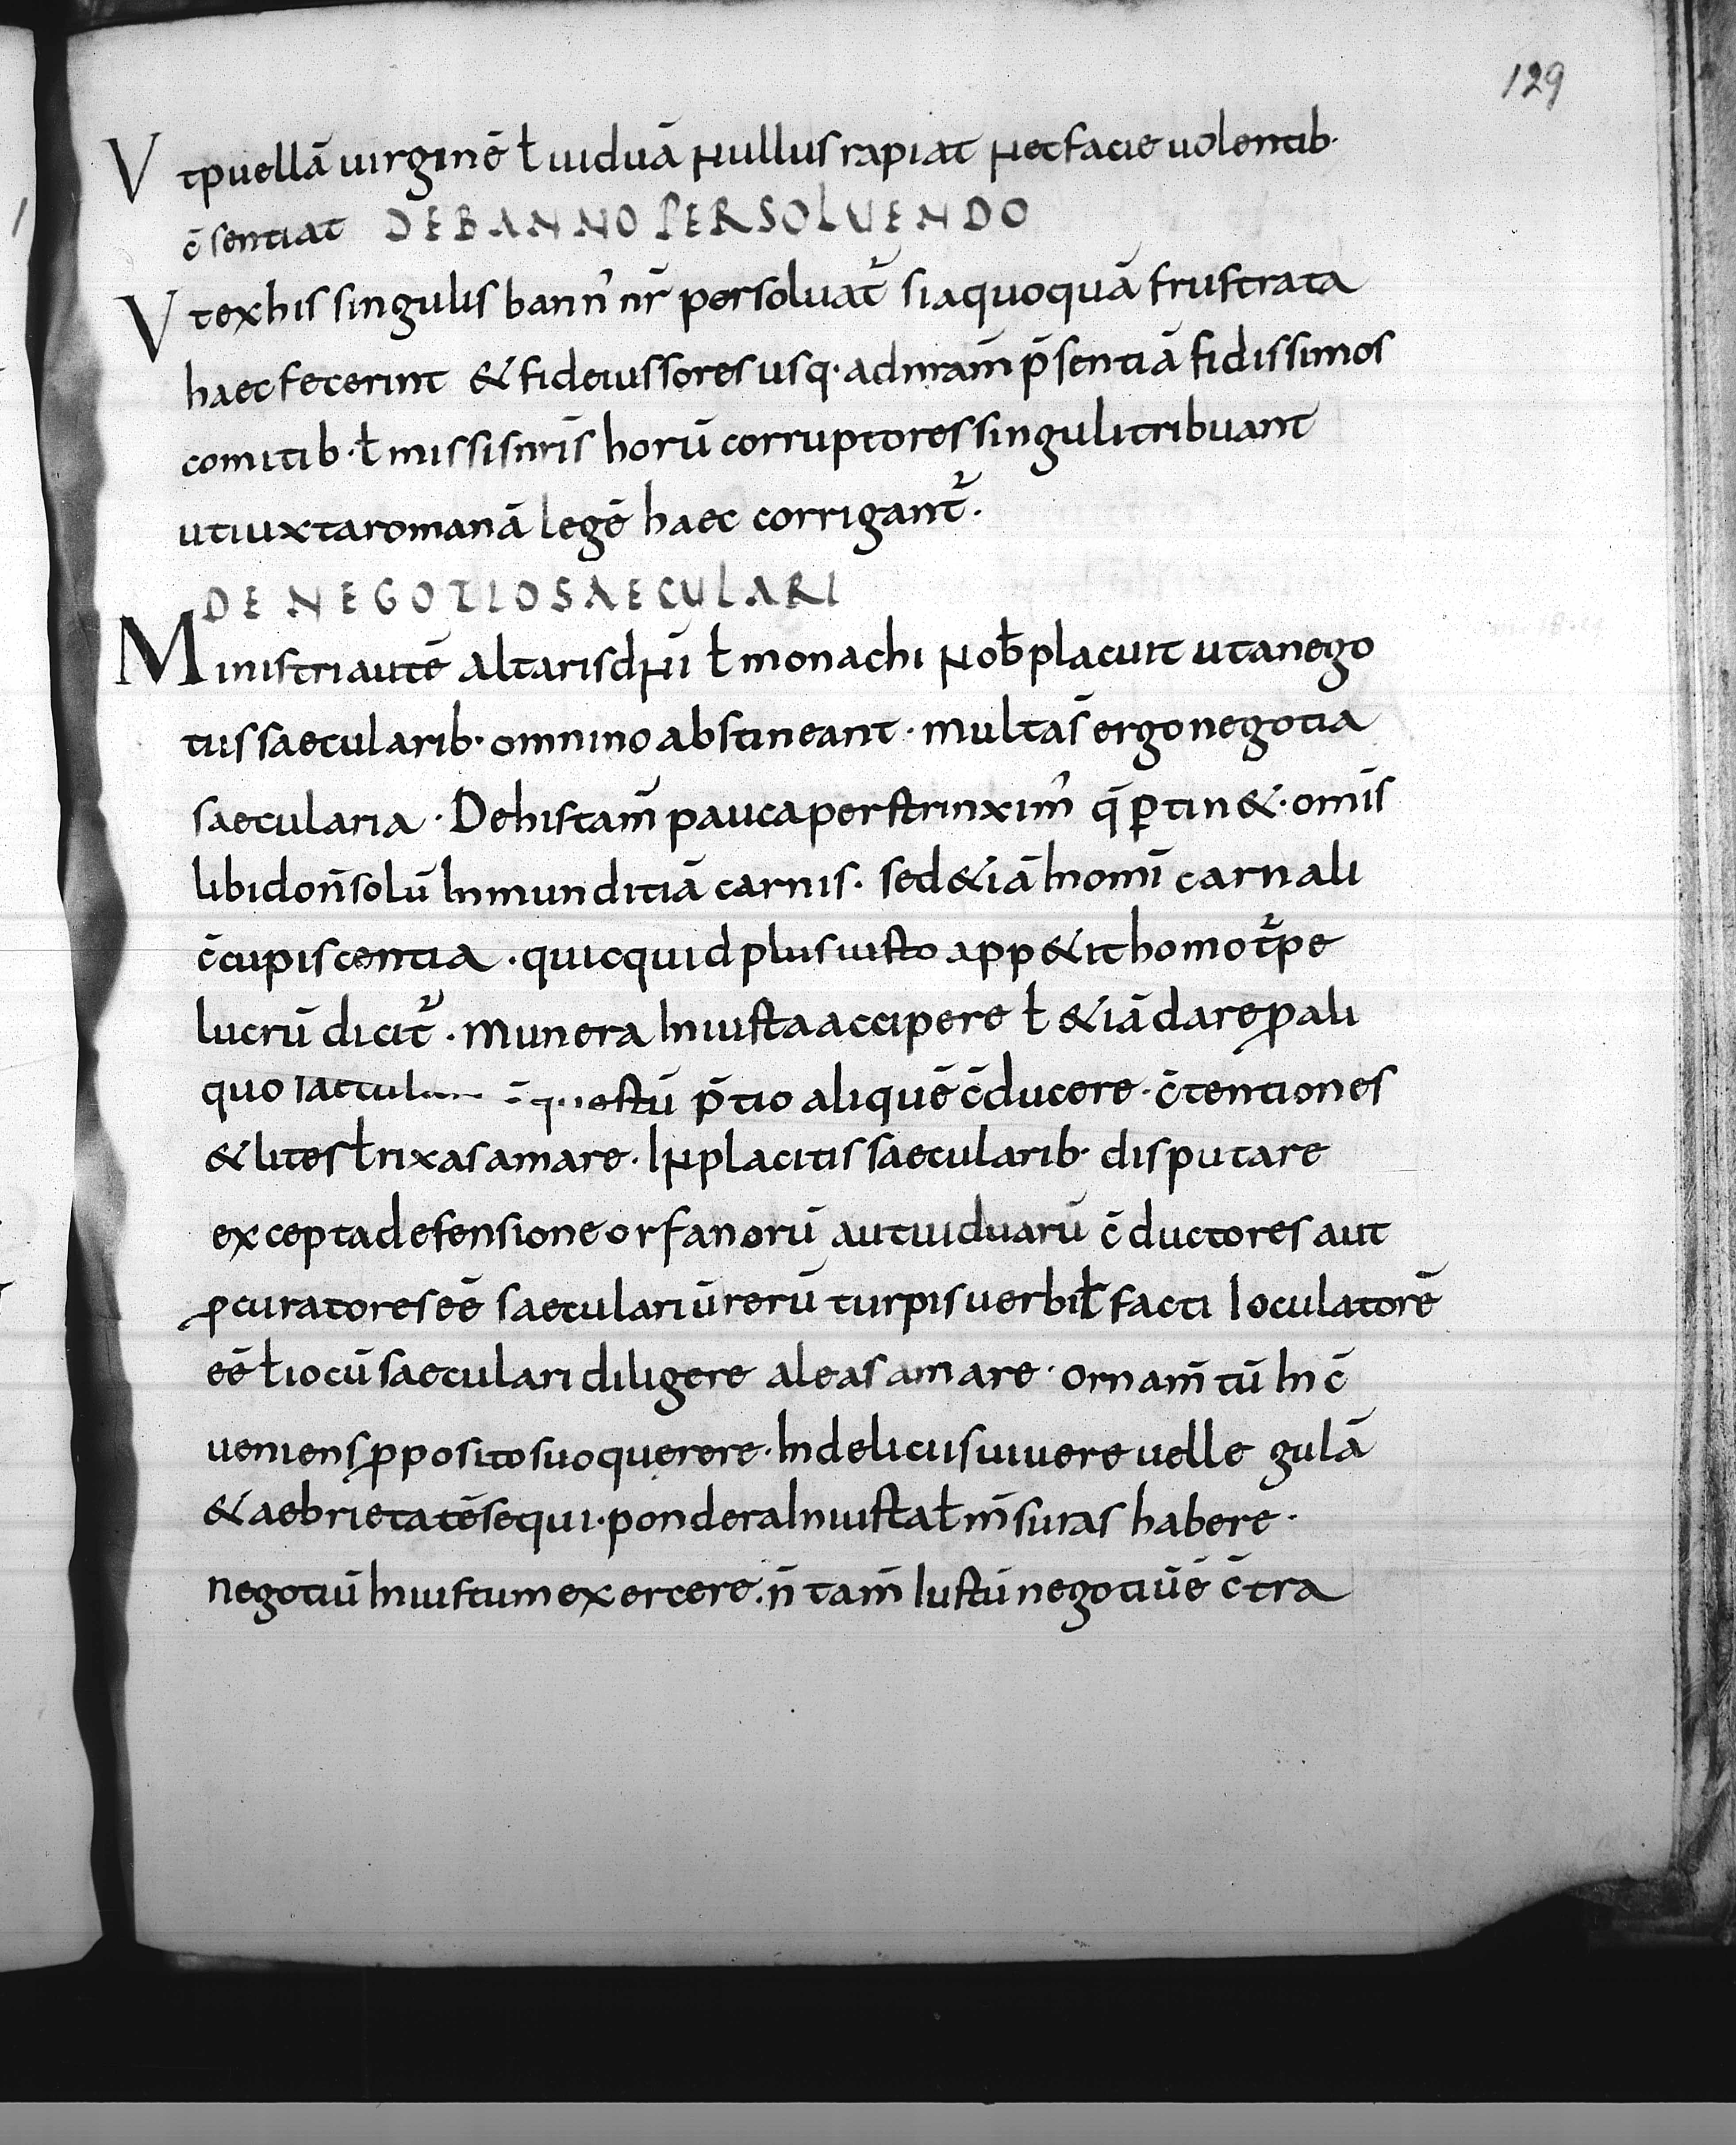 129
Vt puellā uirginē ł uiduā nullus rapiat nec facie uolentib·
c̄sentiat DE BANNO PERSOLUENDO
Vt ex his singulis bann' nr̄ persoluat᷑ si a quoquā frustrata
haec fecerint & fideiussores usq· ad nram̄ p̄sentiā fidissimos
comitib· ł missis nrīs horū corruptores singuli tribuant
ut iuxta romanā legē haec corrigant᷑.
DE NEGOTIO SAECULARI
Ministri autē altaris dn̄i ł monachi nob̄ placuit ut a nego
tiis saecularib· omnino abstineant · multa s̄ ergo negotia
saecularia · De his tam̄ pauca perstrinxim' q̄ ꝑtin&· omīs
libido n̄ solū In munditiā carnis · sed &iā In omī carnali
c̄cupiscentia · quicquid plus iusto app&it homo t᷑pe
lucrū dicit᷑ · munera Iniusta accipere ł &iā dare ꝓ ali
quo p̄tio aliquē c̄ducere · c̄tentiones
& lites ł rixas amare · In placitis saecularib· disputare
excepta defensione orfanorū aut uiduarū c̄ductores aut
ꝓcuratores eē saeculariū rerū turpis uerbi ł facti Ioculatorē
eē ł iocū saeculari diligere aleas amare · ornam̄tū In c̄
ueniens ꝓposito suo querere · In deliciis uiuere uelle gulā
& aebrietatē sequi · pondera Iniusta ł m̄suras habere ·
negotiū Iniustum exercere · n̄ tam̄ Iustū negotiū ē c̄tra